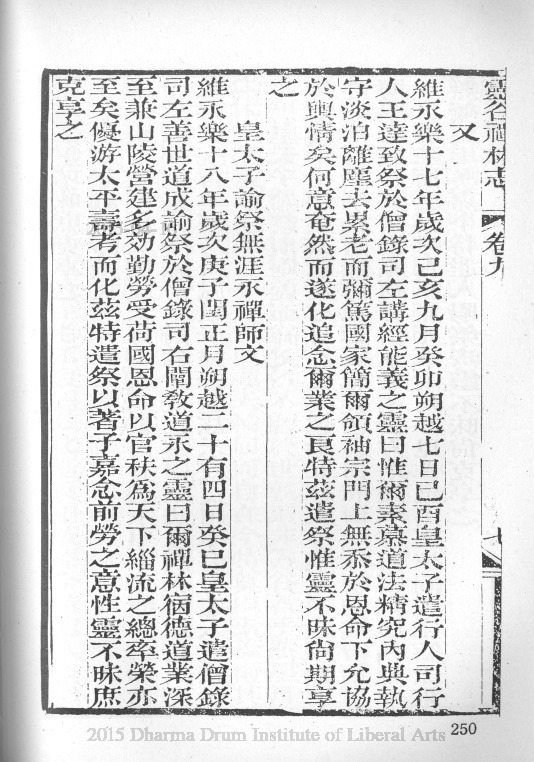 靈谷禪林志 卷九 七
又
維永樂十七年歲次己亥九月癸卯朔越七日己酉皇太子遣行人司行
人王達致祭於僧錄司左講經能義之靈曰惟爾素慕道法精究內典執
守淡泊離塵去累老而彌篤國家簡爾領袖宗門上無忝於恩命下允協
於輿情矣何意奄然而遂化追念爾業之良特茲遣祭惟靈不昧尚期享
之
皇太子諭祭無涯永禪師文
維永樂十八年歲次庚子閏正月朔越二十有四日癸巳皇太子遣僧錄
司左善世道成諭祭於僧錄司右闡敎道永之靈曰爾禪林宿德道業深
至兼山陵營建多効勤勞受荷國恩命以官秩為天下緇流之總率榮亦
至矣優游太平壽考而化茲特遣祭以著予嘉念前勞之意性靈不昧庶
克享之
2015 Dharma Drum Institute of Liberal Arts
250